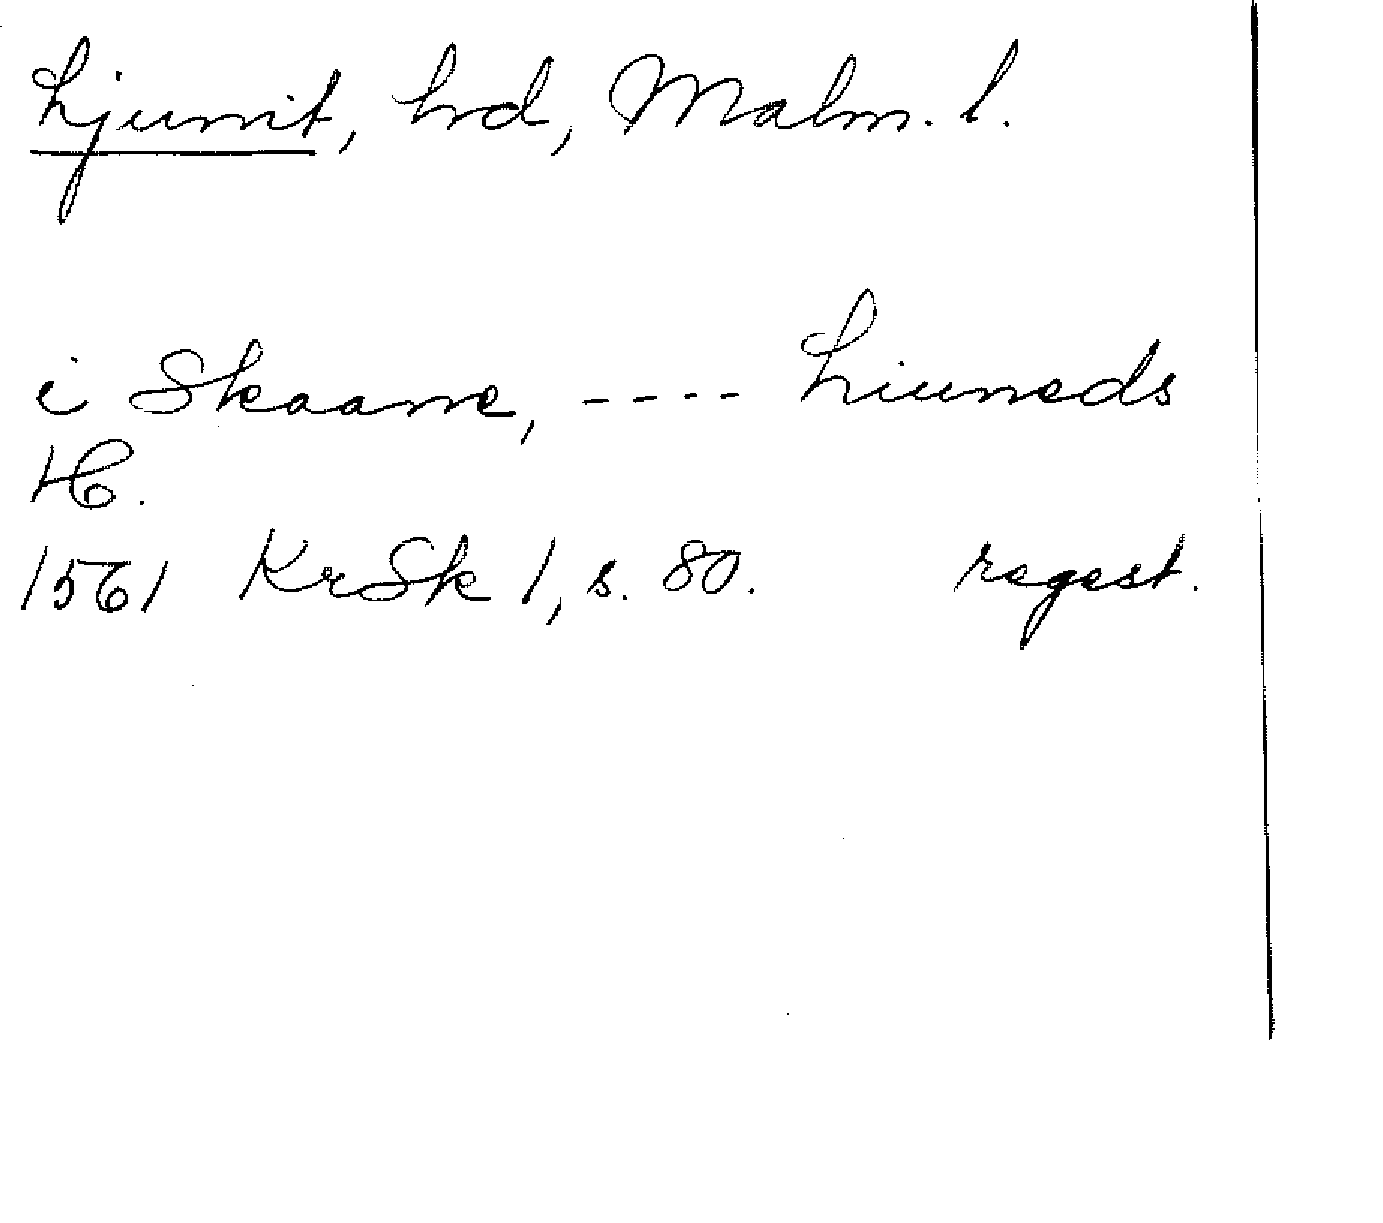 Ljunit, hd, Malm. l.
i Skaane, ---- Liuneds
H.
1561 KrSk 1, s. 80. regest.